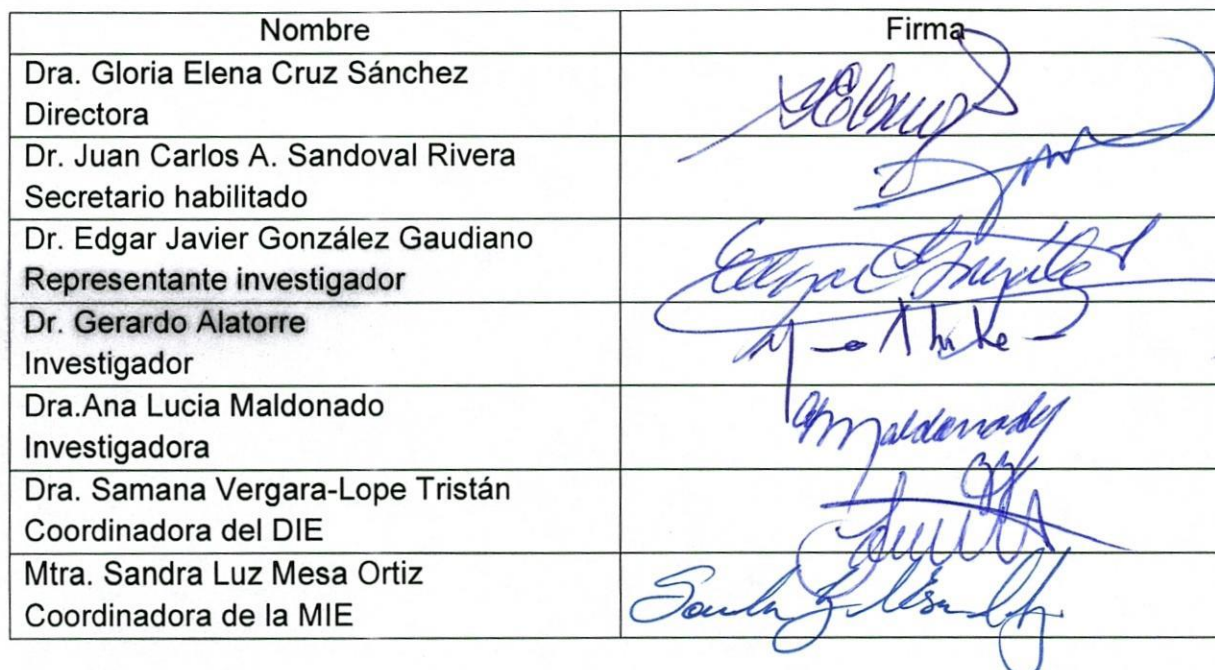 Nombre Firma
Dra. Gloria Elena Cruz Sánchez
Directora
Dr. Juan Carlos A. Sandoval Rivera
Secretario habilitado
Dr. Edgar Javier González Gaudiano
Representante investigador
Dr. Gerardo Alatorre
Investigador
Dra.Ana Lucia Maldonado
Investigadora
Dra. Samana Vergara-Lope Tristán
Coordinadora del DIE
Mtra. Sandra Luz Mesa Ortiz
Coordinadora de la MIE